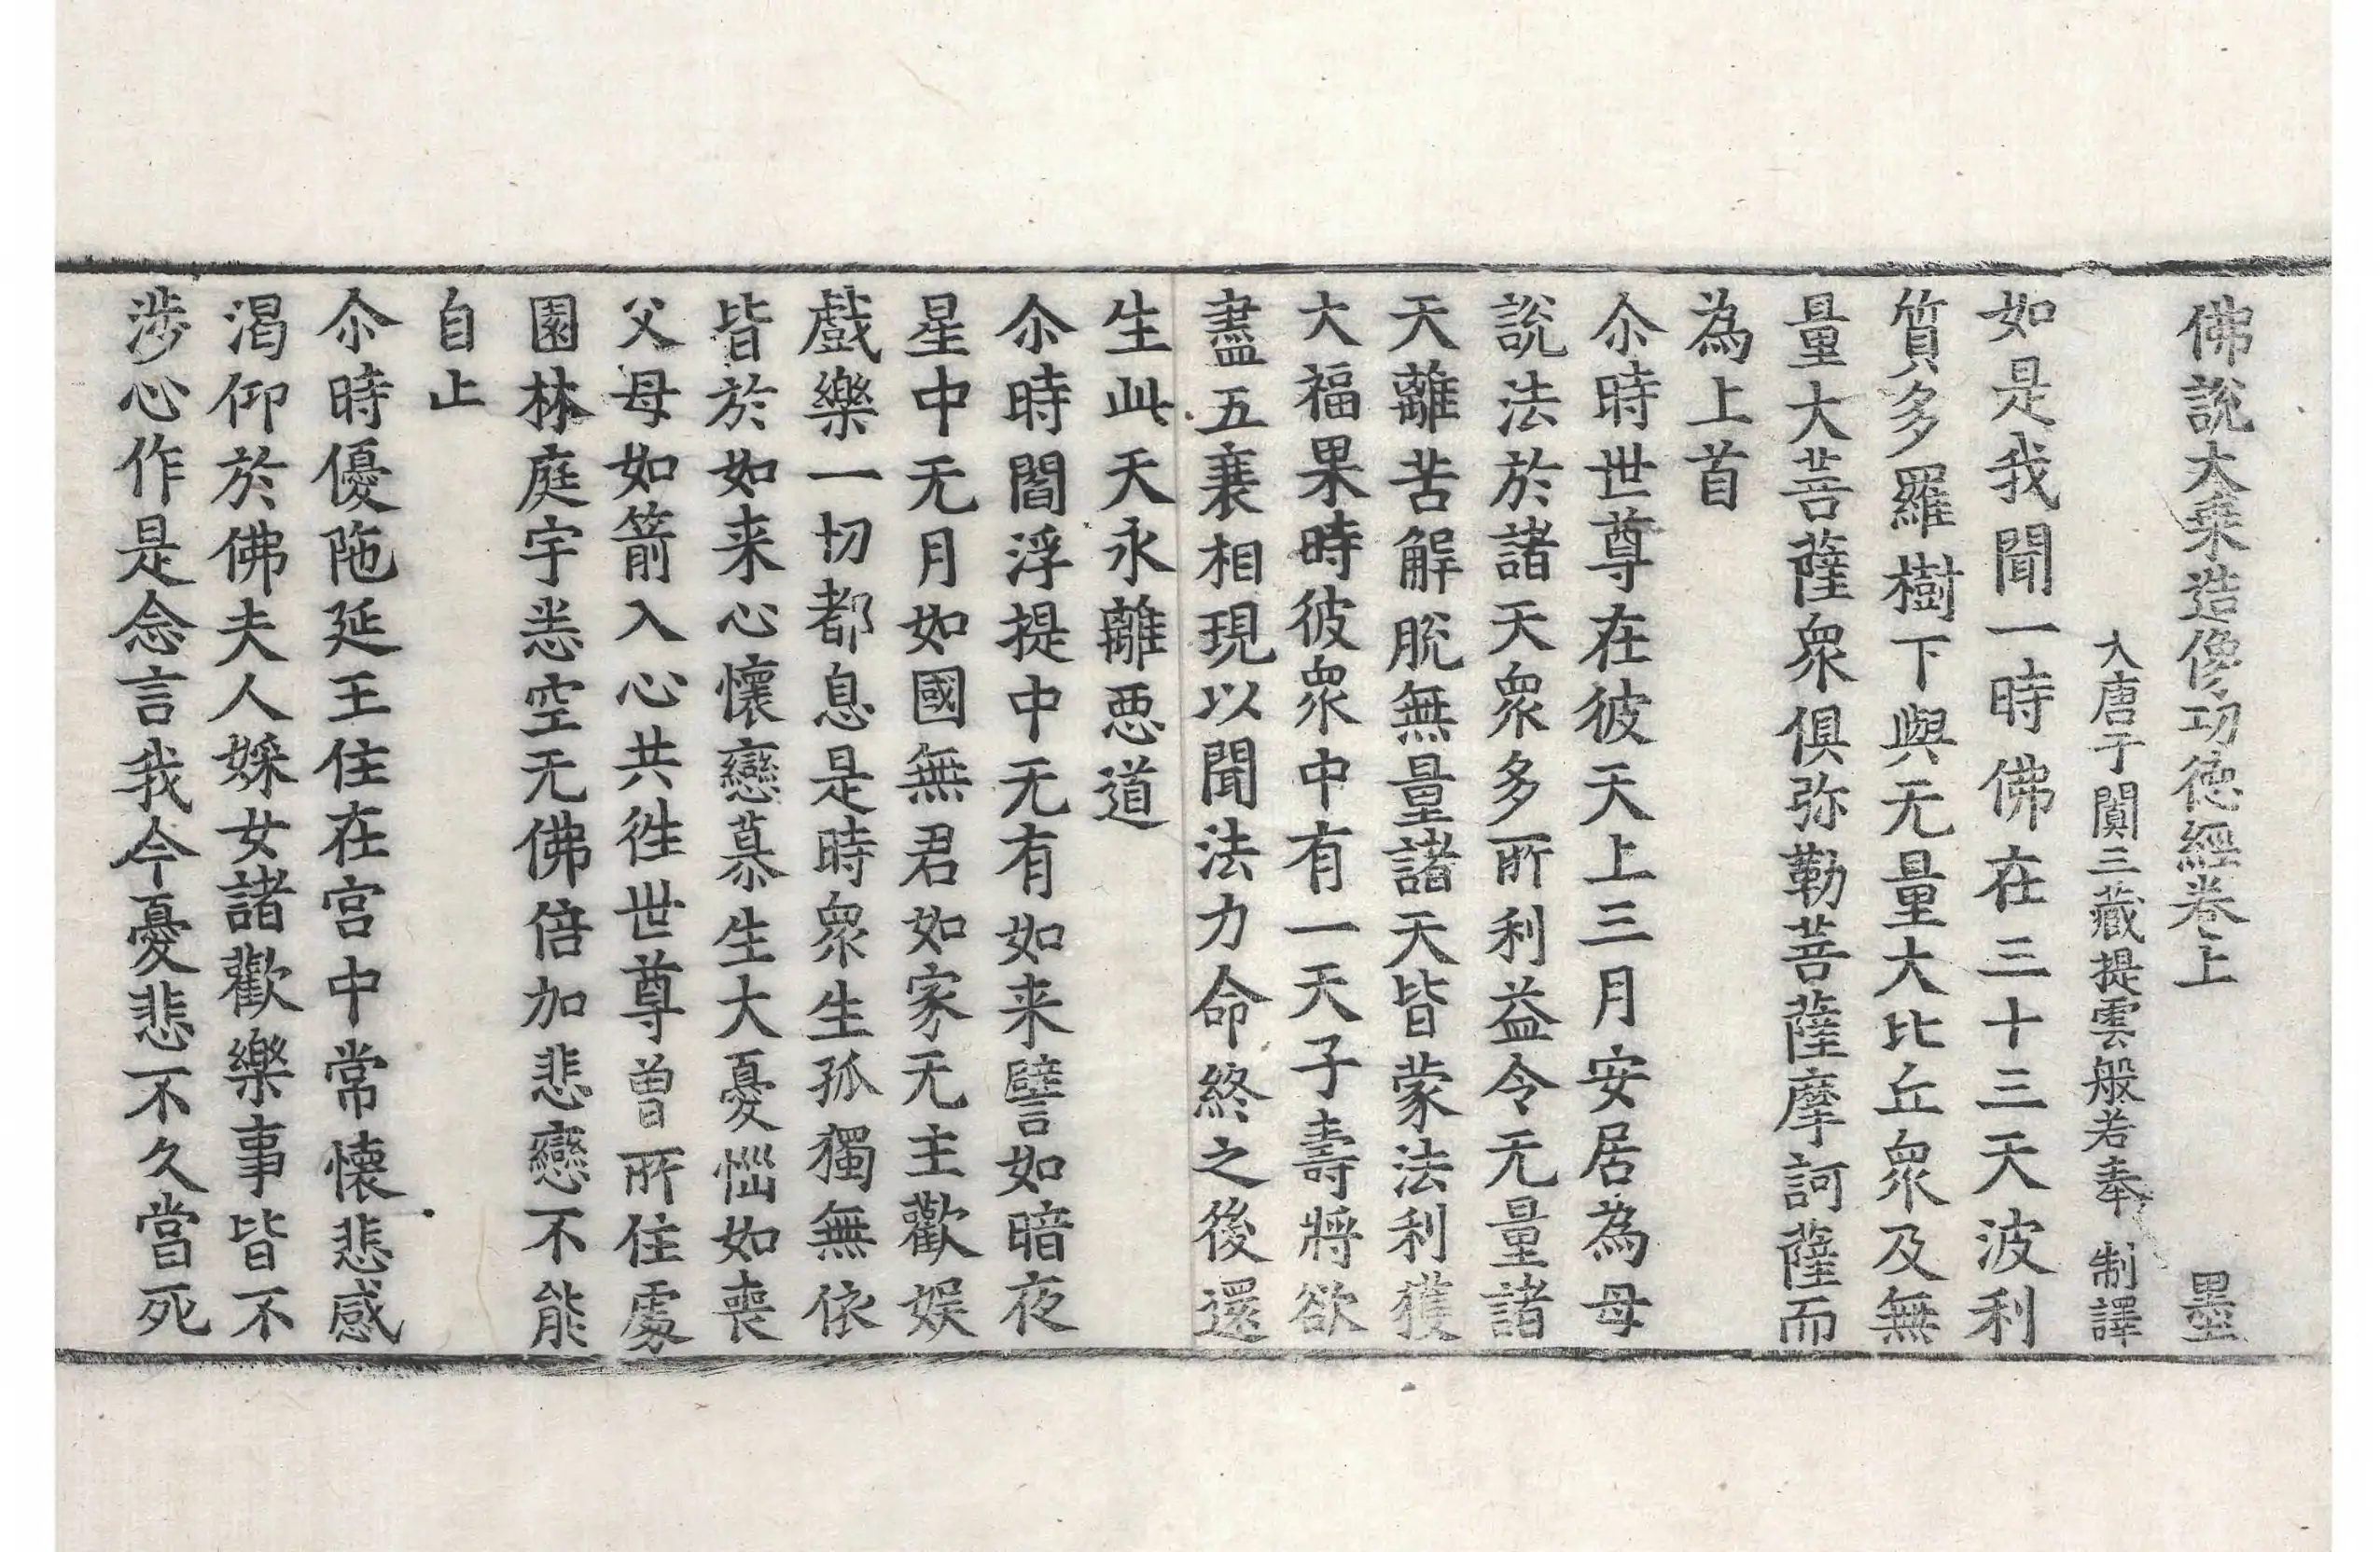 佛說大乗造像功德經卷上 墨
大唐于闐三藏提雲般若奉 制譯
如是我聞一時佛在三十三天波利
質多羅樹下與无量大比丘衆及無
量大菩薩衆俱弥勒菩薩摩訶薩而
為上首
尒時世尊在彼天上三月安居為母
說法於諸天衆多所利益令无量諸
天離苦解脫無量諸天皆蒙法利獲
大福果時彼衆中有一天子壽將欲
盡五衰相現以聞法力命終之後還
生此天永離悪道
尒時閻浮提中无有如来譬如暗夜
星中无月如國無君如家无主歡娱
戲樂一切都息是時衆生孤獨無依
皆於如来心懷戀慕生大憂惱如喪
父母如箭入心共徃世尊曽所住處
園林庭宇悉空无佛倍加悲戀不能
自止
尒時優陁延王住在宮中常懷悲感
渇仰於佛夫人婇女諸歡樂事皆不
渉心作是念言我今憂悲不久當死